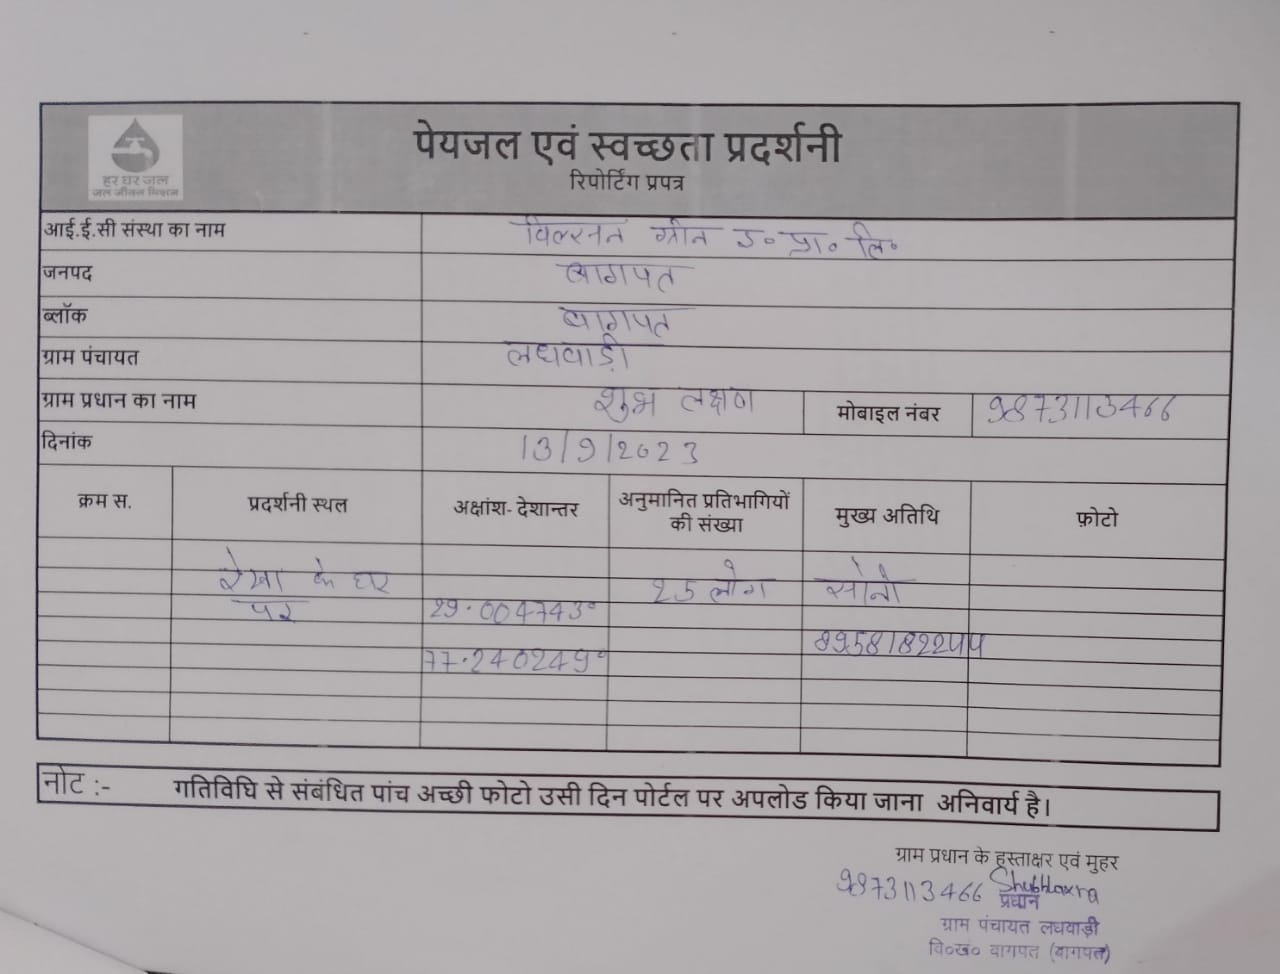 हर घर जल
जल जीवन मिशन
पेयजल एवं स्वच्छता प्रदर्शनी
रिपोर्टिंग प्रपत्र
आई.ई.सी संस्था का नाम विल्सन ग्रीन इ॰ प्रा॰ लि॰
जनपद बागपत
ब्लॉक बागपत
ग्राम पंचायत लधवाड़ी
ग्राम प्रधान का नाम शुभ लक्षण मोबाइल नंबर 9873113466
दिनांक 13/9/2023
क्रम स. प्रदर्शनी स्थल अक्षांश- देशान्तर अनुमानित प्रतिभागियों की संख्या मुख्य अतिथि फ़ोटो
रेखा के घर 25 लोग सोनो
पर 29.004743°
77.240249° 8958182244
नोट :- गतिविधि से संबंधित पांच अच्छी फोटो उसी दिन पोर्टल पर अपलोड किया जाना अनिवार्य है।
ग्राम प्रधान के हस्ताक्षर एवं मुहर
9873113466
प्रधान
ग्राम पंचायत लधवाड़ी
वि०खं० बागपत (बागपत)